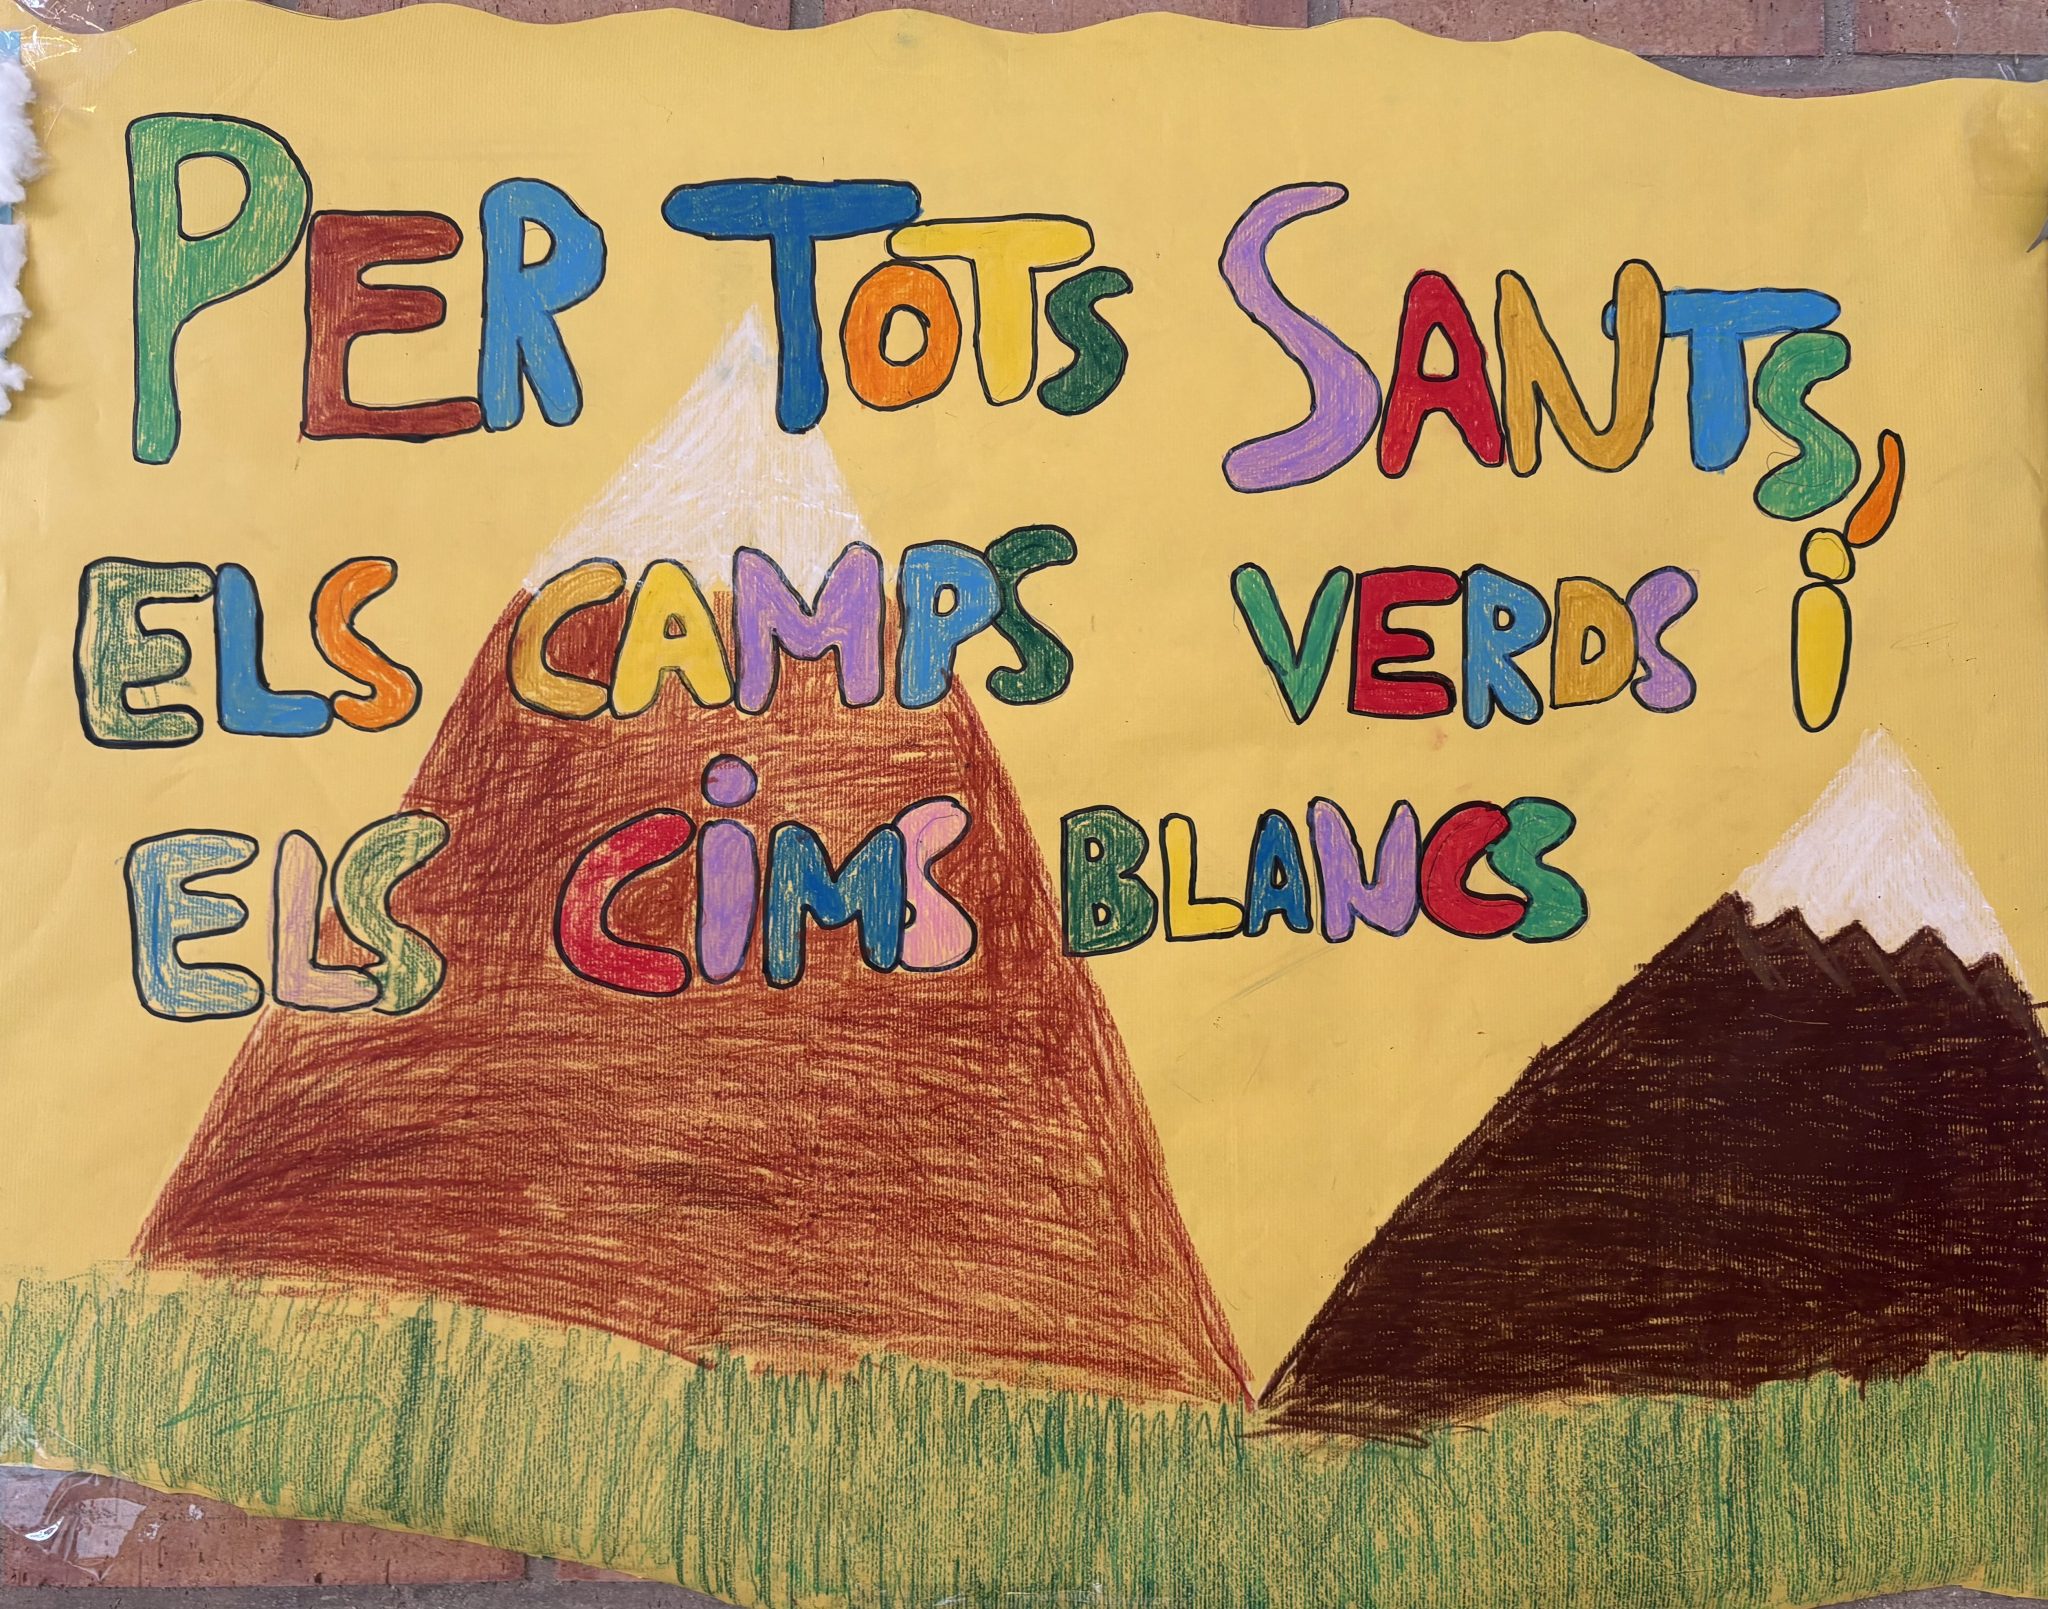 PER TOTS SANTS,
ELS CAMPS VERDS i
ELS CiMS BLANCS